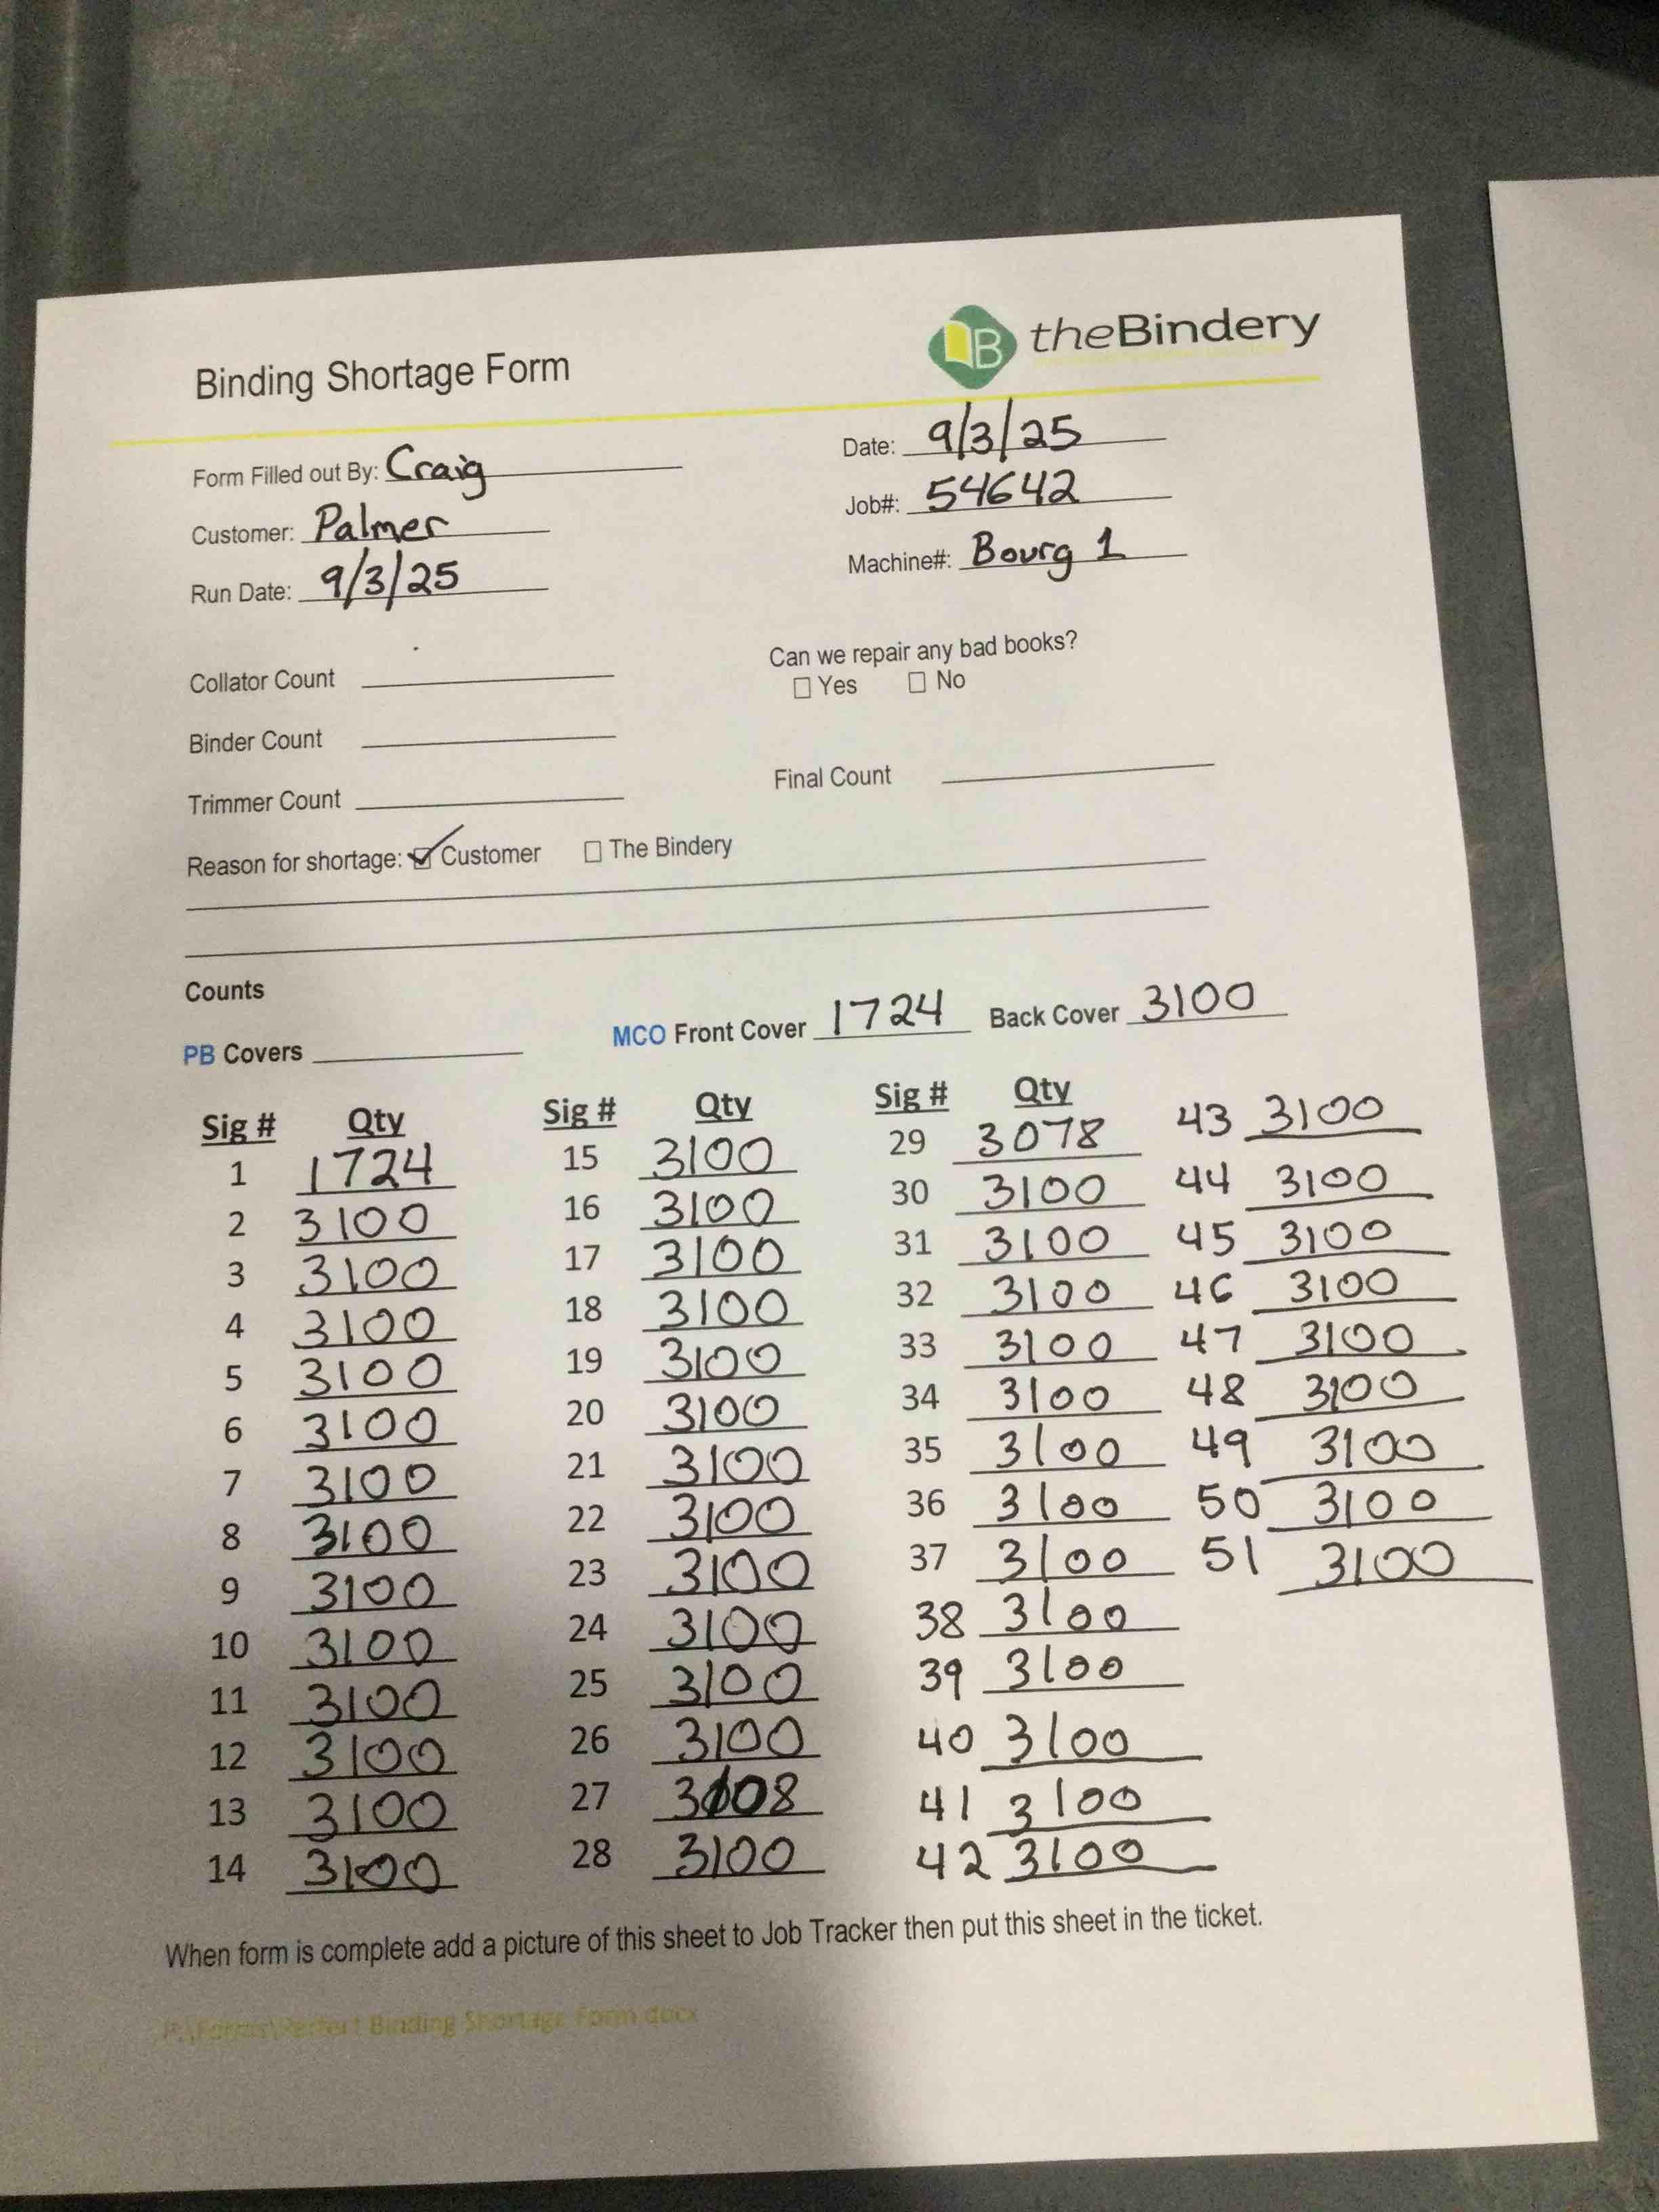 theBindery
Binding Shortage Form
Form Filled out By: Craig
Date: 9/3/25
Customer: Palmer
Job#: 54642
Run Date: 9/3/25
Machine#: Bourg 1
Collator Count
Can we repair any bad books?
☐ Yes ☐ No
Binder Count
Trimmer Count
Final Count
Reason for shortage: ☑ Customer ☐ The Bindery
Counts
PB Covers
MCO Front Cover 1724 Back Cover 3100
Sig # Qty
1 1724
2 3100
3 3100
4 3100
5 3100
6 3100
7 3100
8 3100
9 3100
10 3100
11 3100
12 3100
13 3100
14 3100
Sig # Qty
15 3100
16 3100
17 3100
18 3100
19 3100
20 3100
21 3100
22 3100
23 3100
24 3100
25 3100
26 3100
27
28 3100
Sig # Qty
29 3078
30 3100
31 3100
32 3100
33 3100
34 3100
35 3100
36 3100
37 3100
38 3100
39 3100
40 3100
41 3100
42 3100
43 3100
44 3100
45 3100
46 3100
47 3100
48 3100
49 3100
50 3100
51 3100
When form is complete add a picture of this sheet to Job Tracker then put this sheet in the ticket.
P:\Forms\Perfect Binding Shortage Form.docx